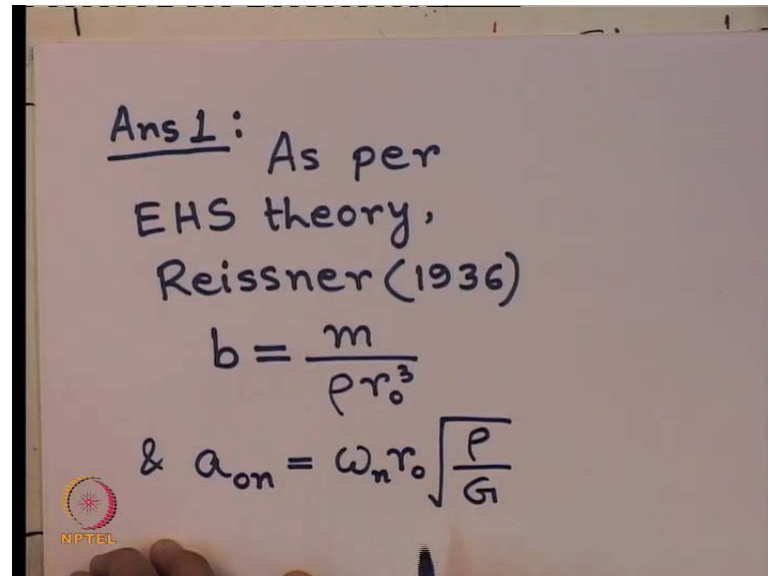 Ans 1: As per
EHS theory,
Reissner (1936)
b = m / ρr₀³
& a₀ₙ = ωₙr₀ √(ρ/G)
NPTEL